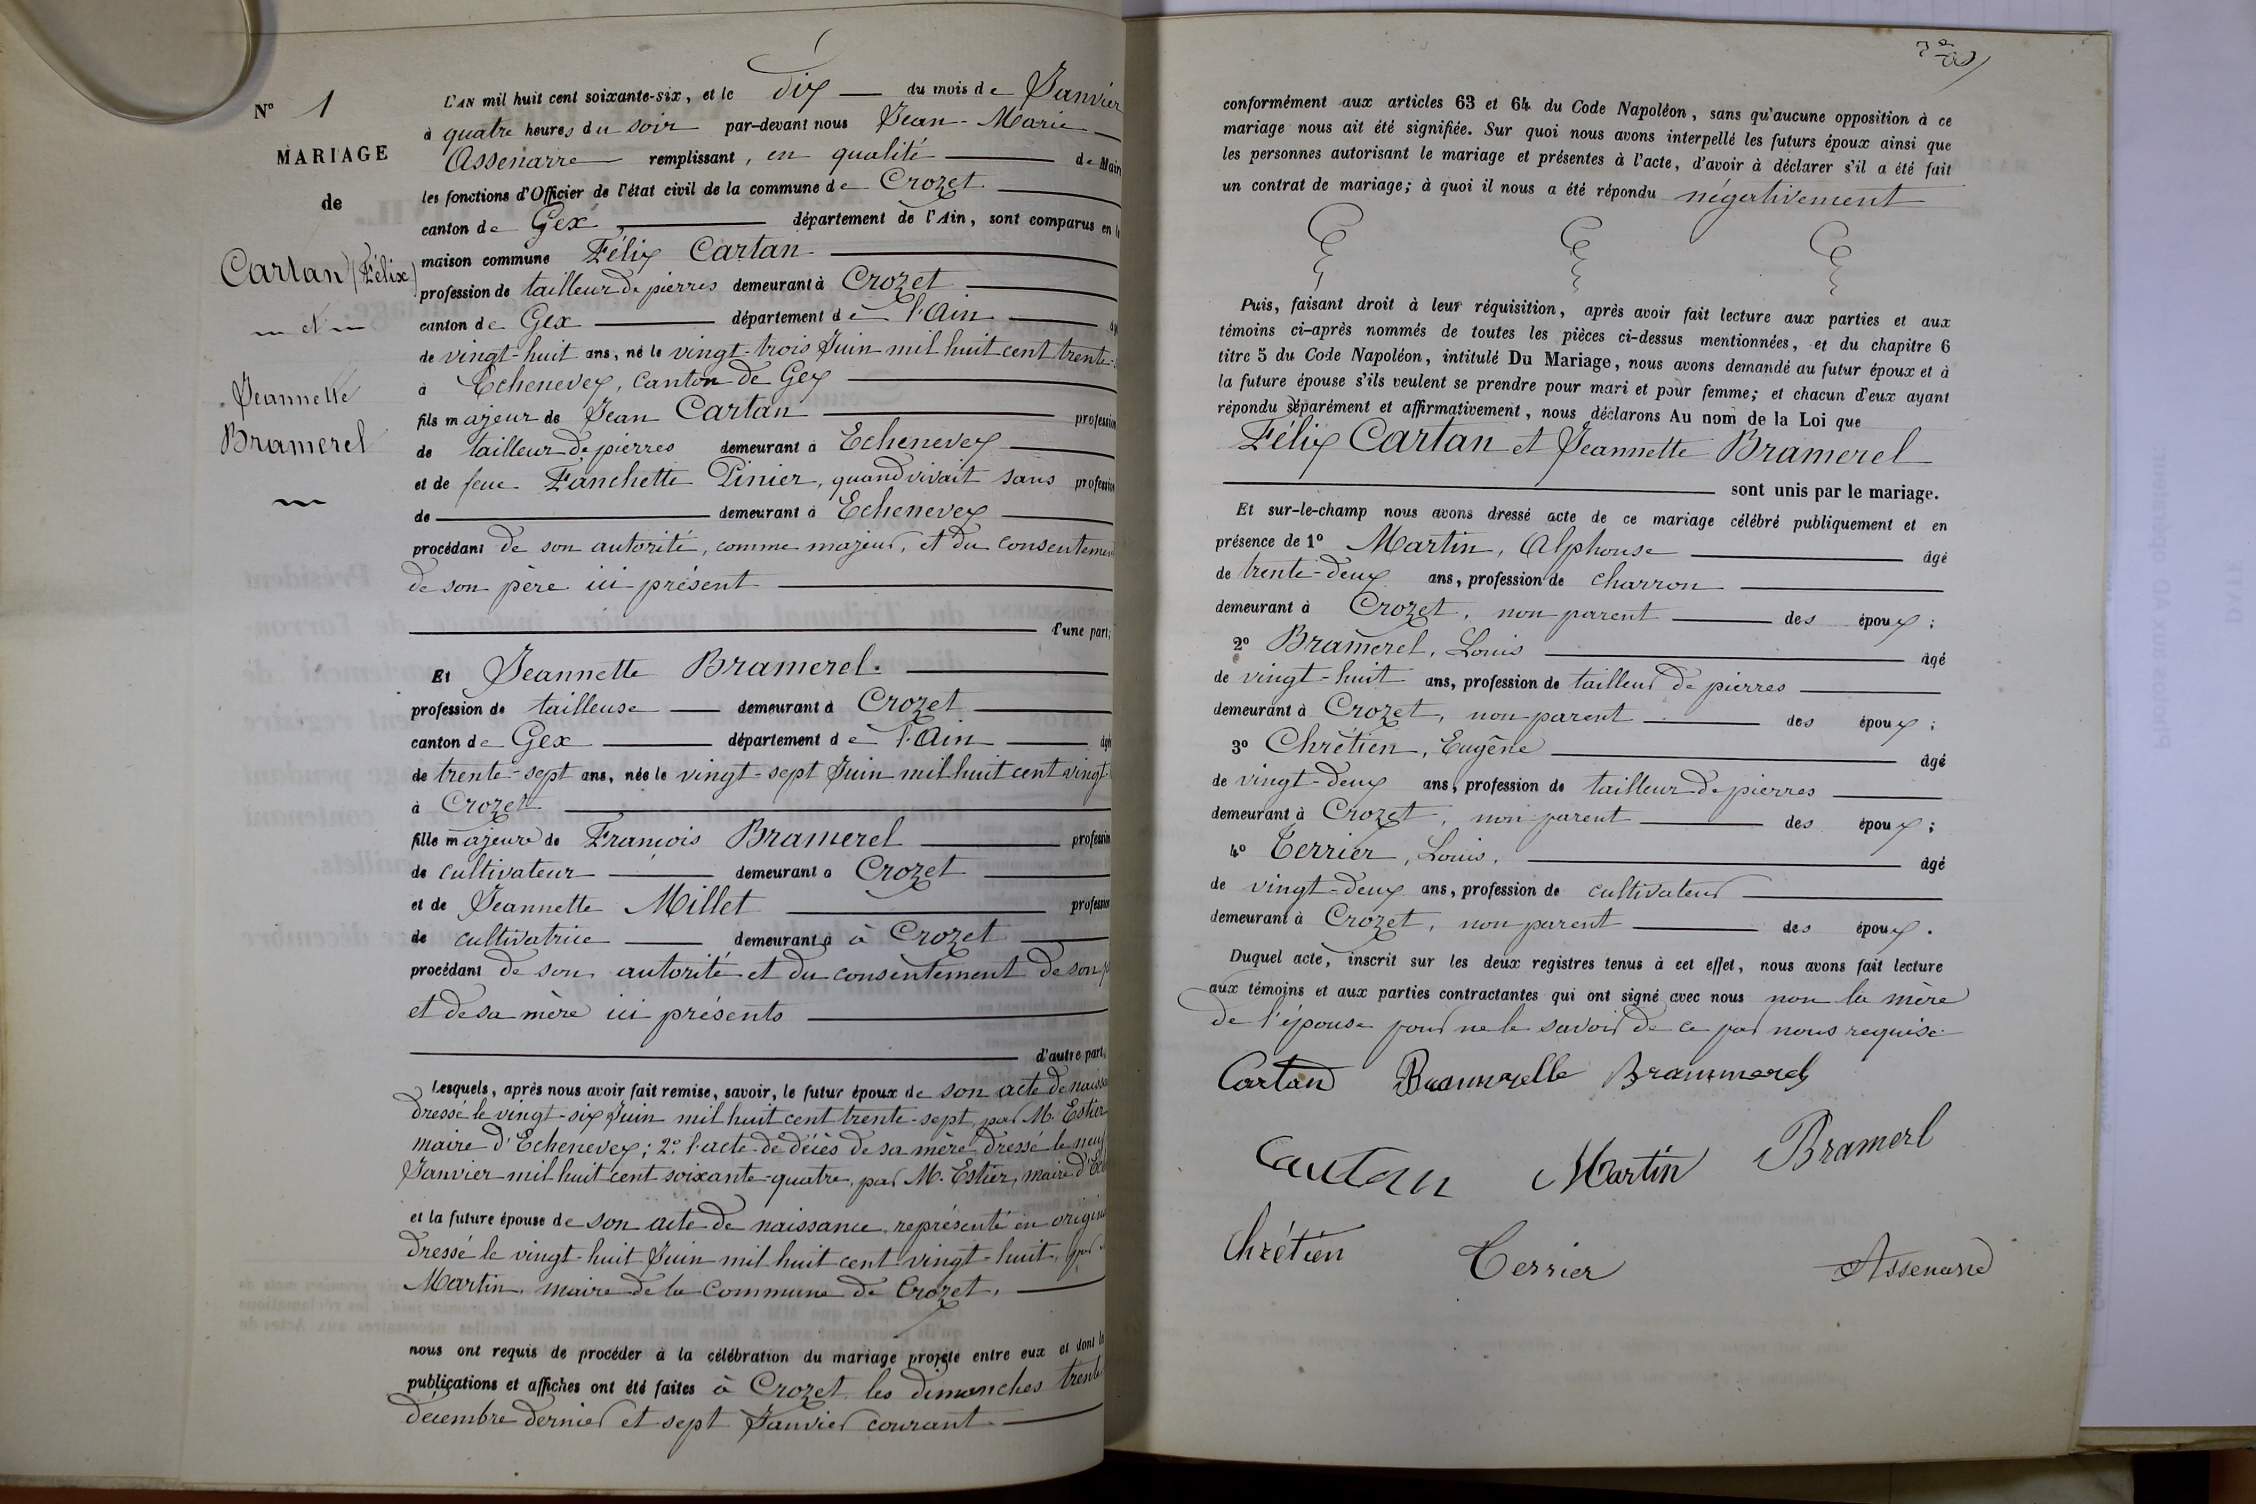 N° 1
MARIAGE
de
Cartan (Félix)
et
Jeannette
Bramerel
L'AN mil huit cent soixante-six, et le dix du mois de Janvier
à quatre heures du soir par-devant nous Jean-Marie
Assenarre remplissant, en qualité de Mair
les fonctions d'Officier de l'état civil de la commune de Crozet
canton de Gex, département de l'Ain, sont comparus en la
maison commune Félix Cartan
profession de tailleur de pierres demeurant à Crozet
canton de Gex département de l'Ain
de vingt-huit ans, né le vingt-trois Juin mil huit cent trente-
à Echenevex, canton de Gex
fils majeur de Jean Cartan profession
de tailleur de pierres demeurant à Echenevex
et de feue Fanchette Pinier, quand vivait sans profession
de demeurant à Echenevex
procédant de son autorité, comme majeur, et du consentemen
de son père ici présent
d'une part;
Et Jeannette Bramerel.
profession de tailleuse demeurant à Crozet
canton de Gex département de l'Ain
de trente-sept ans, née le vingt-sept Juin mil huit cent vingt-
à Crozet
fille majeure de François Bramerel profession
de cultivateur demeurant à Crozet
et de Jeannette Millet profession
de cultivatrice demeurant à à Crozet
procédant de son autorité et du consentement de son
et de sa mère ici présents
d'autre part,
Lesquels, après nous avoir fait remise, savoir, le futur époux de son acte de naissa
dressé le vingt-six Juin mil huit cent trente-sept, par M. Estier
maire d'Echenevex; 2° l'acte de décès de sa mère dressé le neuf
Janvier mil huit cent soixante-quatre, par M. Estier, maire d'Ech
et la future épouse de son acte de naissance, représenté en origina
dressé le vingt-huit Juin mil huit cent vingt-huit, par
Martin, maire de la Commune de Crozet,
nous ont requis de procéder à la célébration du mariage projeté entre eux et dont les
publications et affiches ont été faites à Crozet, les dimanches trente
décembre dernier et sept Janvier courant
conformément aux articles 63 et 64 du Code Napoléon, sans qu'aucune opposition à ce
mariage nous ait été signifiée. Sur quoi nous avons interpellé les futurs époux ainsi que
les personnes autorisant le mariage et présentes à l'acte, d'avoir à déclarer s'il a été fait
un contrat de mariage; à quoi il nous a été répondu négativement
Puis, faisant droit à leur réquisition, après avoir fait lecture aux parties et aux
témoins ci-après nommés de toutes les pièces ci-dessus mentionnées, et du chapitre 6
titre 5 du Code Napoléon, intitulé Du Mariage, nous avons demandé au futur époux et à
la future épouse s'ils veulent se prendre pour mari et pour femme; et chacun d'eux ayant
répondu séparément et affirmativement, nous déclarons Au nom de la Loi que
Félix Cartan et Jeannette Bramerel
sont unis par le mariage.
Et sur-le-champ nous avons dressé acte de ce mariage célébré publiquement et en
présence de 1° Martin, Alphonse âgé
de trente-deux ans, profession de charron
demeurant à Crozet, non parent des époux;
2° Bramerel, Louis âgé
de vingt-huit ans, profession de tailleur de pierres
demeurant à Crozet, non parent des époux;
3° Chrétien, Eugêne âgé
de vingt-deux ans, profession de tailleur de pierres
demeurant à Crozet, non parent des époux;
4° Terrier, Louis, âgé
de vingt-deux ans, profession de cultivateur
demeurant à Crozet, non parent des époux.
Duquel acte, inscrit sur les deux registres tenus à cet effet, nous avons fait lecture
aux témoins et aux parties contractantes qui ont signé avec nous non la mère
de l'épouse pour ne le savoir de ce par nous requise
Cartan
Cartan Martin Bramerl
Chrétien Terrier Assenarre